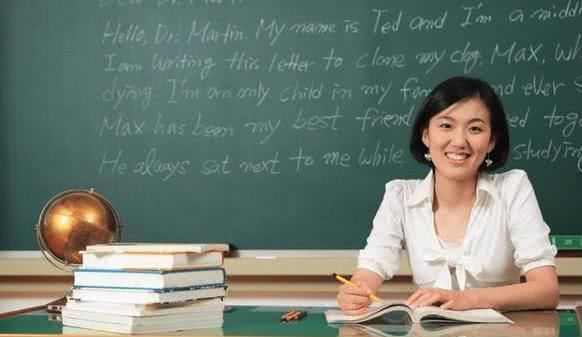 Hello, Dr. Martin. My name is Ted and I'm a midd
I am writing this letter to clone my dog, Max, wh
dying. I'm an only child in my fam and ever s
Max has been my best friend ed tog
He always sat next to me while studying